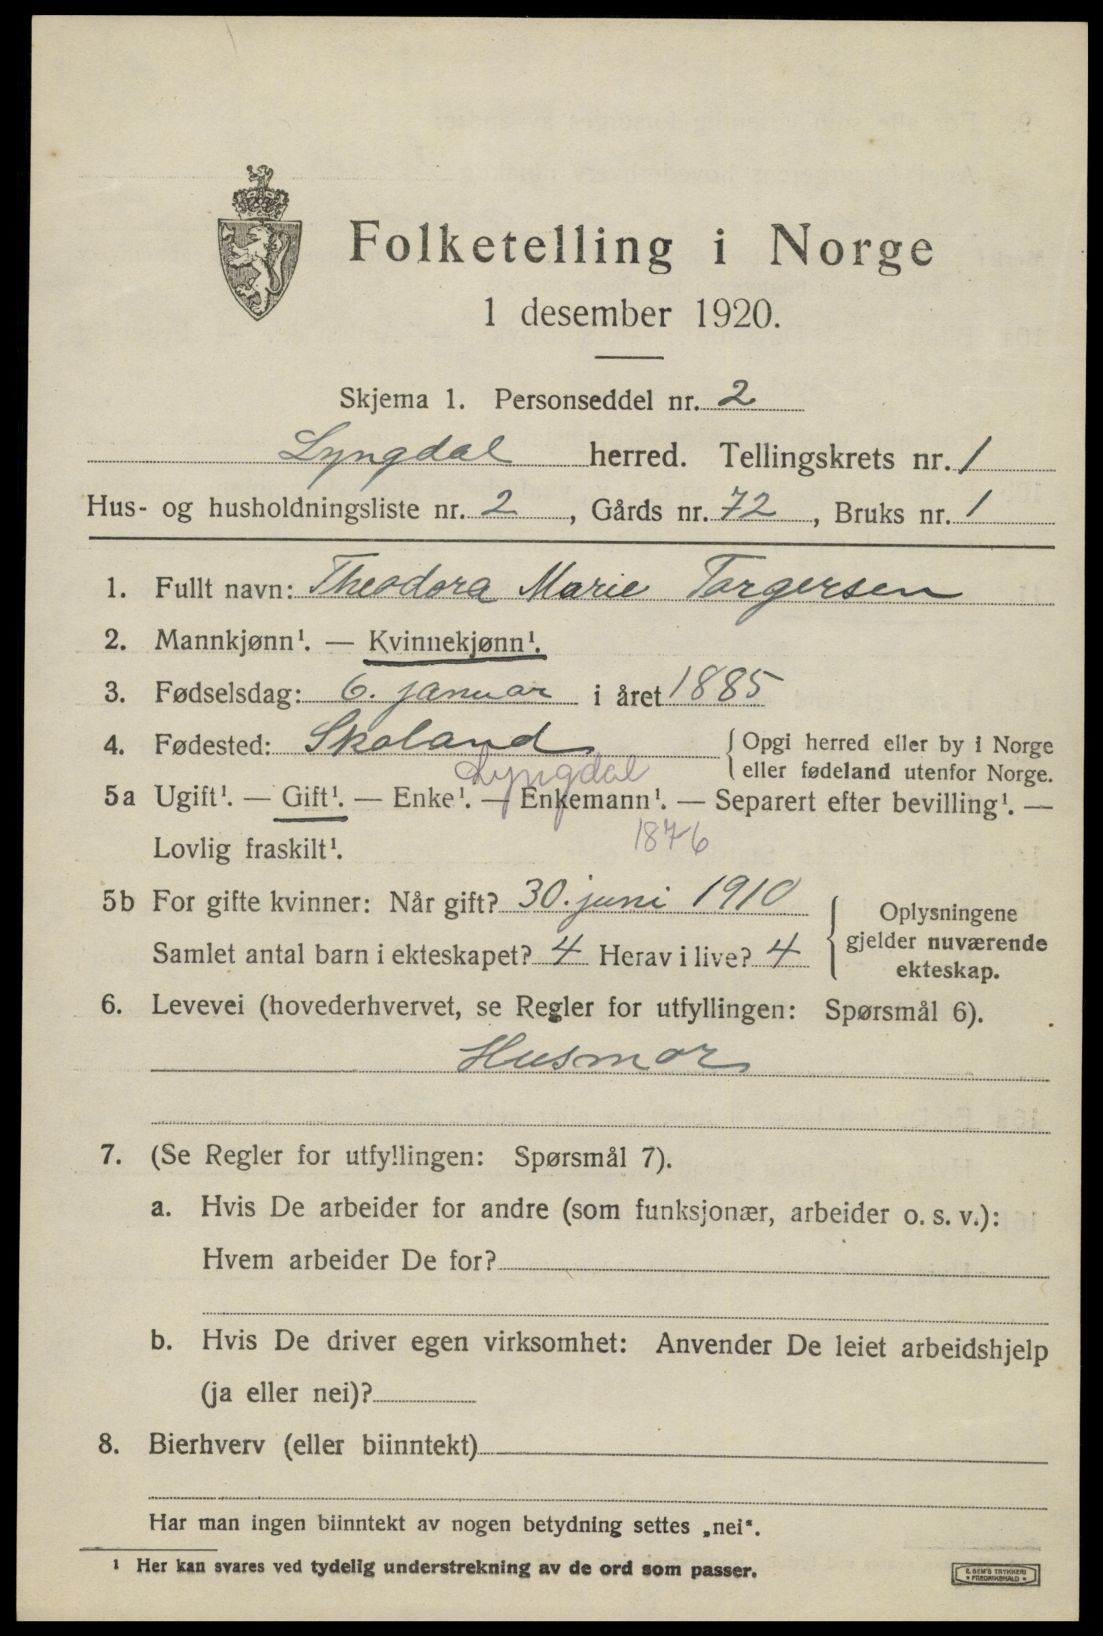 Folketelling i Norge
1 desember 1920.
Skjema 1. Personseddel nr. 2
Lyngdal herred. Tellingskrets nr. 1
Hus- og husholdningsliste nr. 2, Gårds nr. 72, Bruks nr. 1
1. Fullt navn: Theodora Marie Torgersen
2. Mannkjønn¹. — Kvinnekjønn¹.
3. Fødselsdag: 6. januar i året 1885
4. Fødested: Skoland { Opgi herred eller by i Norge
eller fødeland utenfor Norge.
Lyngdal
5a Ugift¹. — Gift¹. — Enke¹. — Enkemann¹. — Separert efter bevilling¹. —
Lovlig fraskilt¹. 1876
5b For gifte kvinner: Når gift? 30. juni 1910 { Oplysningene
gjelder nuværende
ekteskap.
Samlet antal barn i ekteskapet? 4 Herav i live? 4
6. Levevei (hovederhvervet, se Regler for utfyllingen: Spørsmål 6).
Husmor
7. (Se Regler for utfyllingen: Spørsmål 7).
a. Hvis De arbeider for andre (som funksjonær, arbeider o. s. v.):
Hvem arbeider De for?
b. Hvis De driver egen virksomhet: Anvender De leiet arbeidshjelp
(ja eller nei)?
8. Bierhverv (eller biinntekt)
Har man ingen biinntekt av nogen betydning settes „nei“.
¹ Her kan svares ved tydelig understrekning av de ord som passer.
E. SEM'S TRYKKERI
* FREDRIKSHALD *